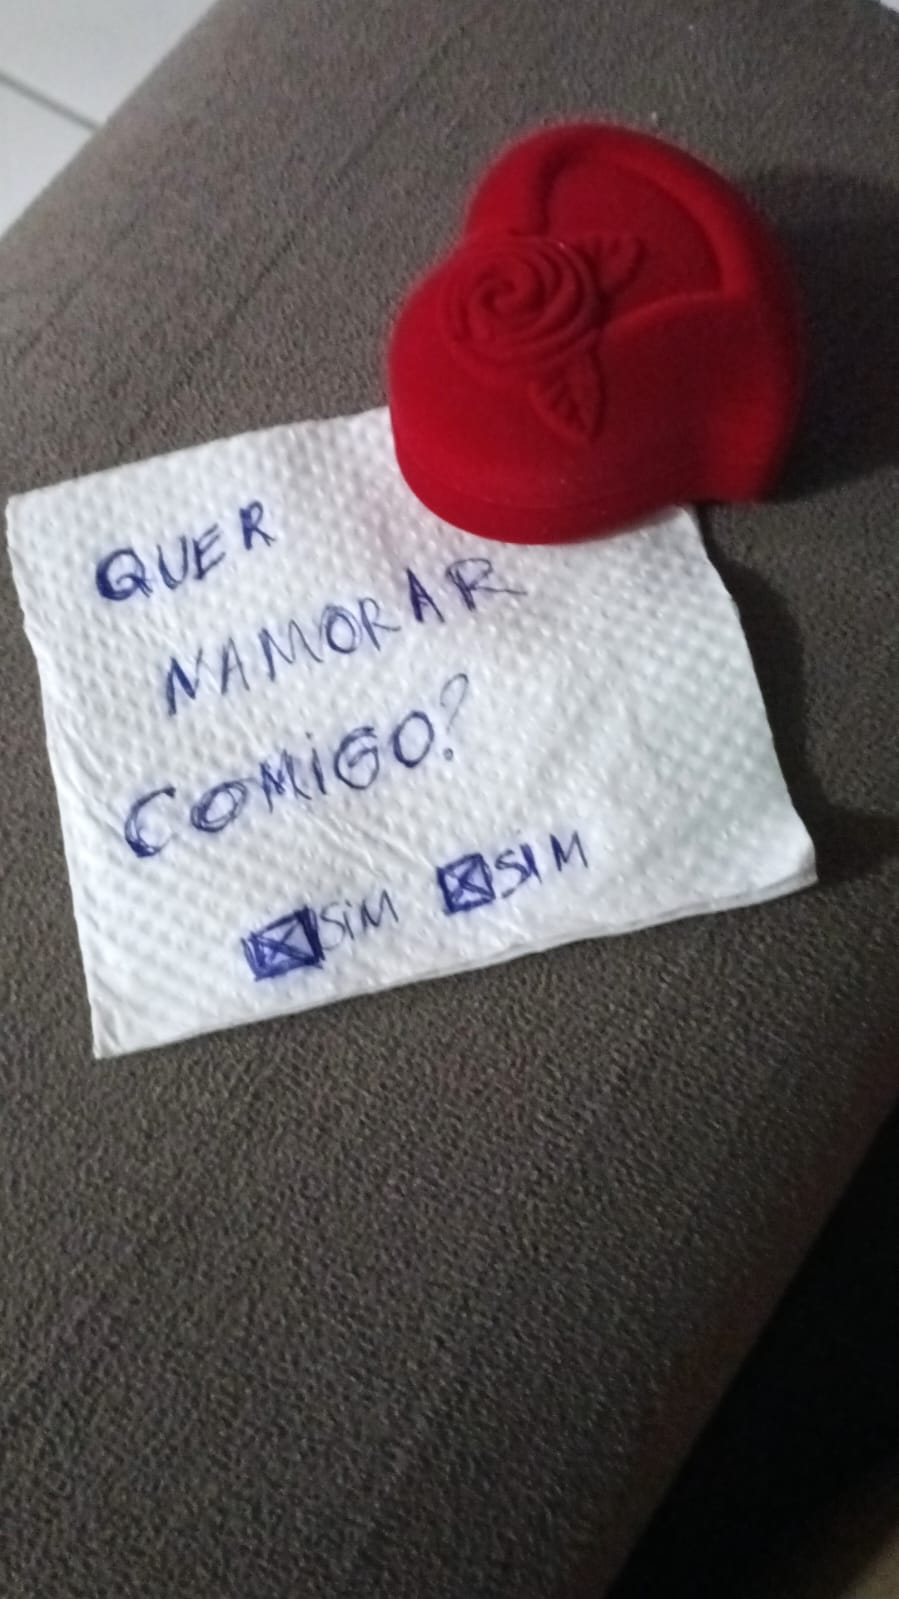 QUER
NAMORAR
COMIGO?
SIM SIM